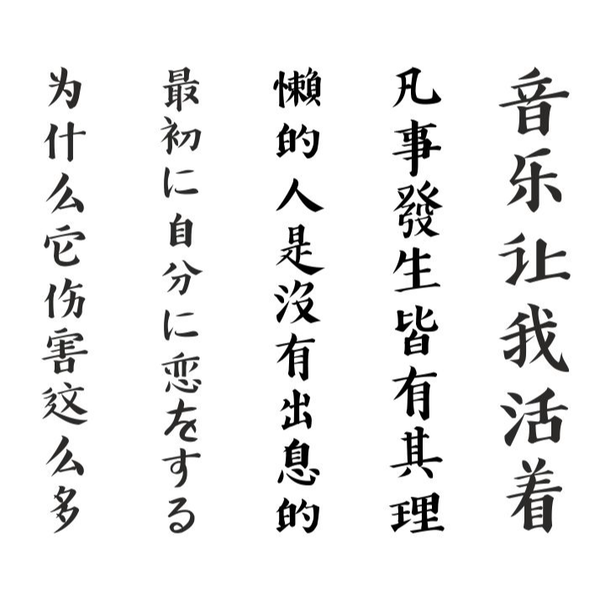 音乐让我活着
凡事發生皆有其理
懶的人是沒有出息的
最初に自分に恋をする
为什么它伤害这么多